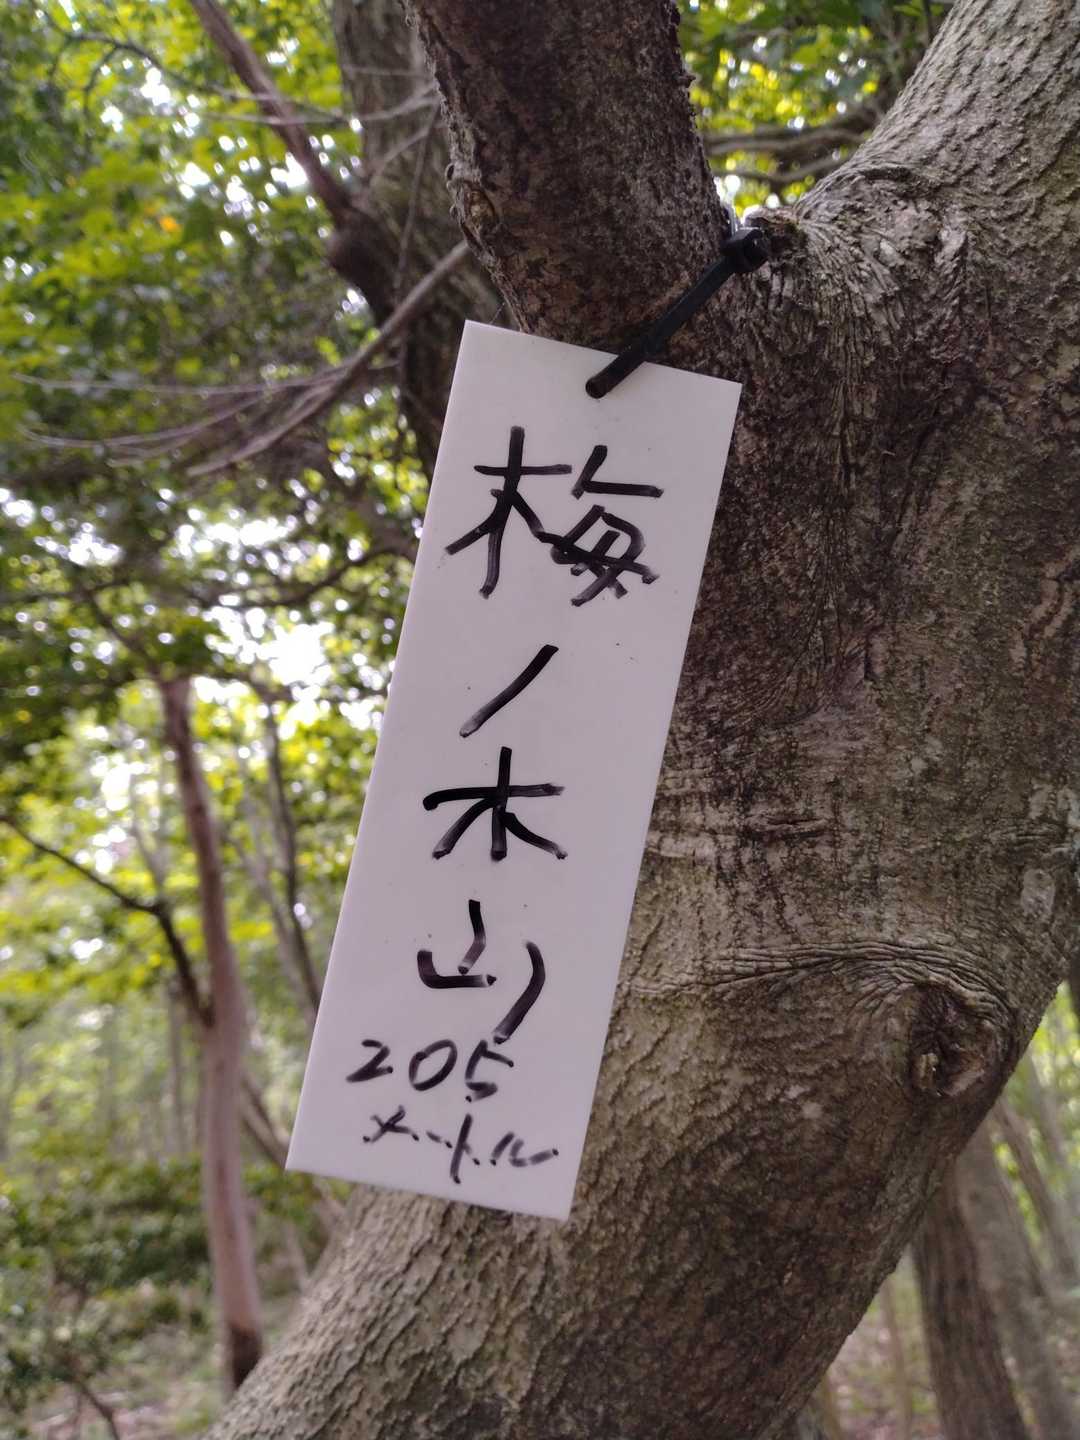 梅ノ木山
205
メートル